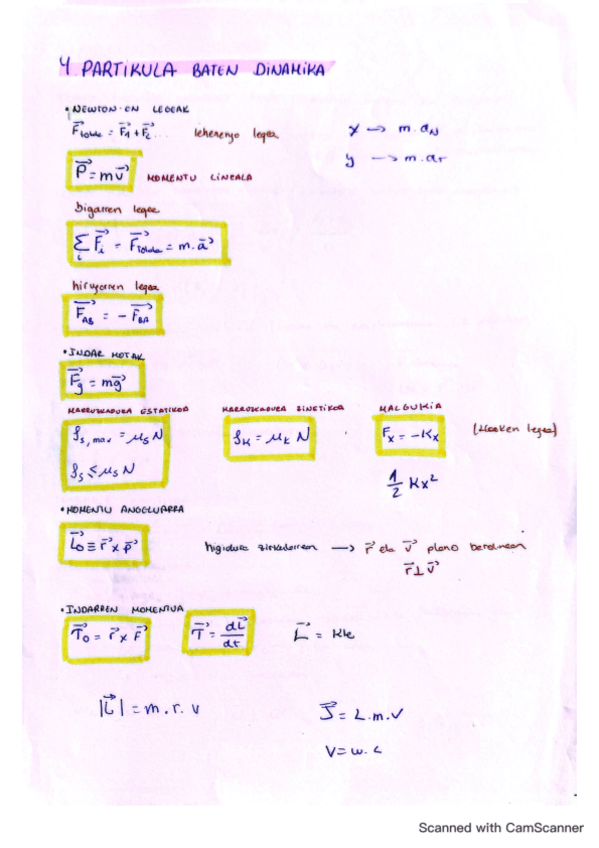 4 PARTIKULA BATEN DINAMIKA
• NEWTON-EN LEGEAK
F⃗totala = F⃗1 + F⃗2 ... lehenengo legea
x → m.aN
y → m.aT
P⃗ = mv⃗ MOMENTU LINEALA
bigarren legea
∑i F⃗i = F⃗totala = m.a⃗
hirugarren legea
F⃗AB = - F⃗BA
• INDAR MOTAK
F⃗g = mg⃗
MARRUSKADURA ESTATIKOA MARRUSKADURA ZINETIKOA MALGUKIA
fs,max = μs N fk = μk N Fx = -Kx (Hooken legea)
fs ≤ μs N
1/2 Kx²
• MOMENTU ANGELUARRA
L⃗o ≡ r⃗ x p⃗ higidura zirkularrean → r⃗ eta v⃗ plano berdinean
r⃗ ⊥ v⃗
• INDARREN MOMENTUA
T⃗o = r⃗ x F⃗ T⃗ = dL⃗/dt L⃗ = Kte
|L⃗| = m.r.v
J⃗ = L.m.v
v = w.L
Scanned with CamScanner